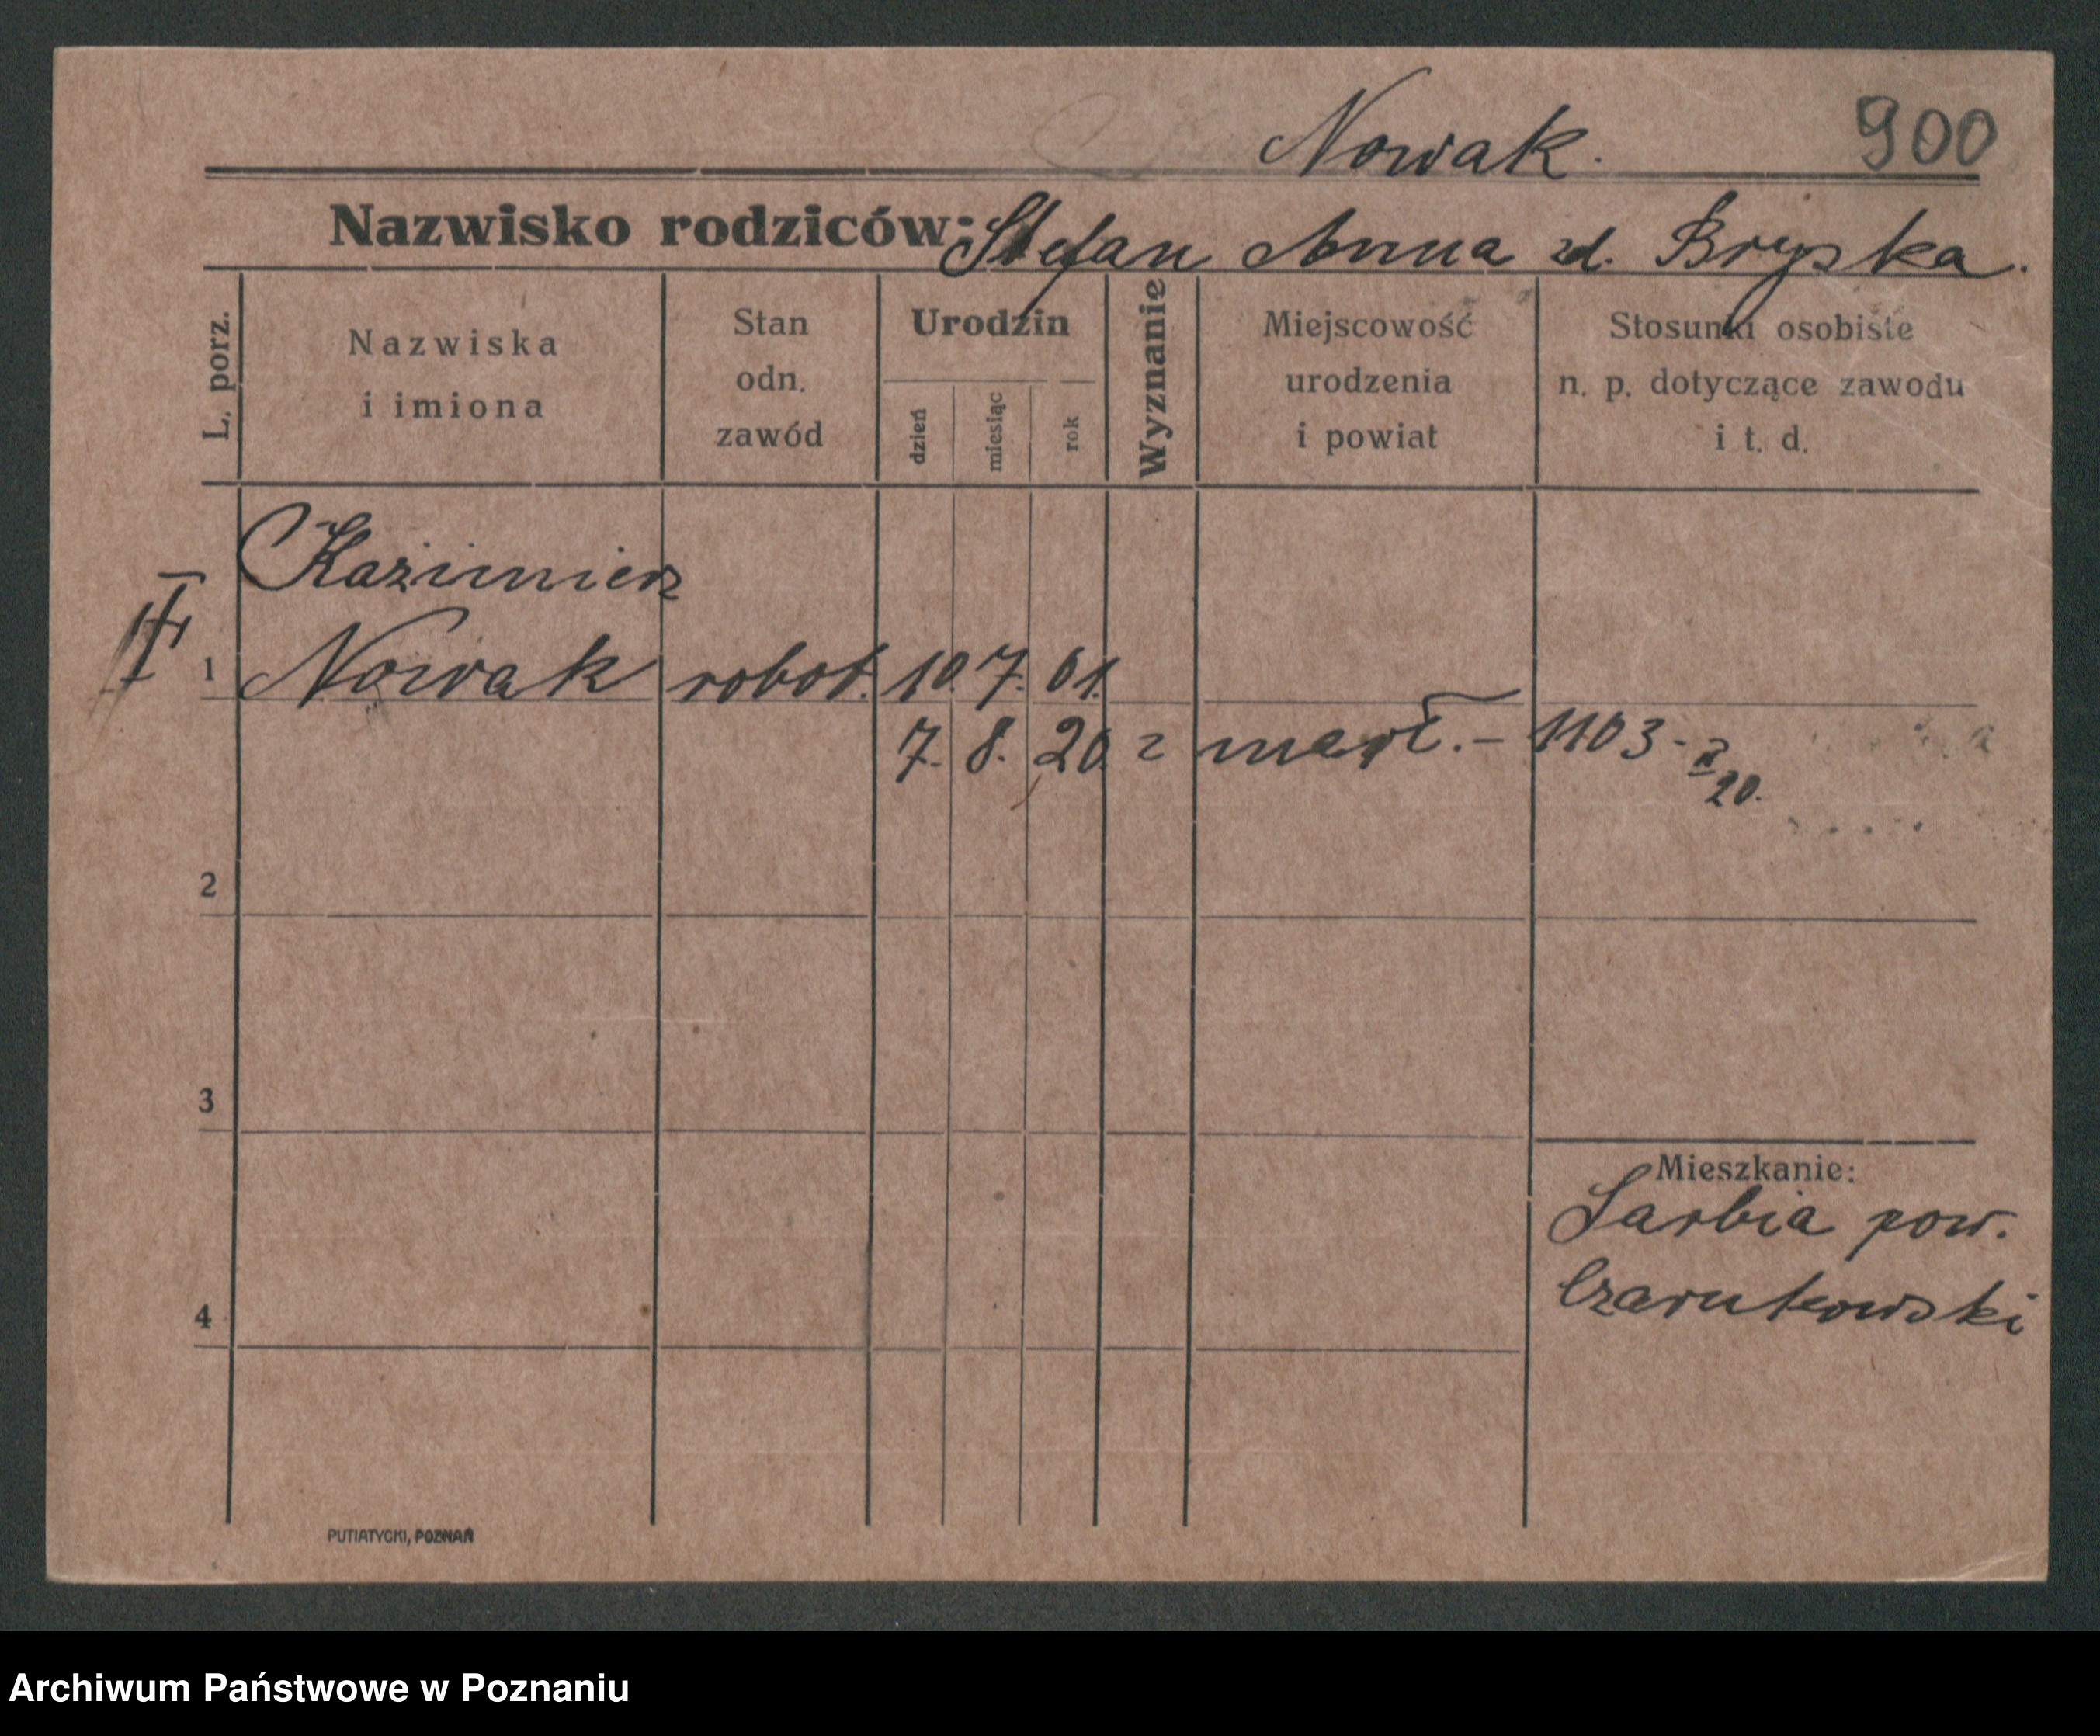 Nowak. 900
Nazwisko rodziców: Stefan Anna zd. Bryska.
L. porz.
Nazwiska
i imiona
Stan
odn.
zawód
Urodzin
dzień
miesiąc
rok
Wyznanie
Miejscowość
urodzenia
i powiat
Stosunki osobiste
n. p. dotyczące zawodu
i t. d.
Kazimierz
1 Nowak robot. 10. 7. 01.
7. 8. 20. zmarł. – 1103 -
20.
2
3
Mieszkanie:
Sarbia pow.
Czarnkowski
4
PUTIATYCKI, POZNAŃ
Archiwum Państwowe w Poznaniu